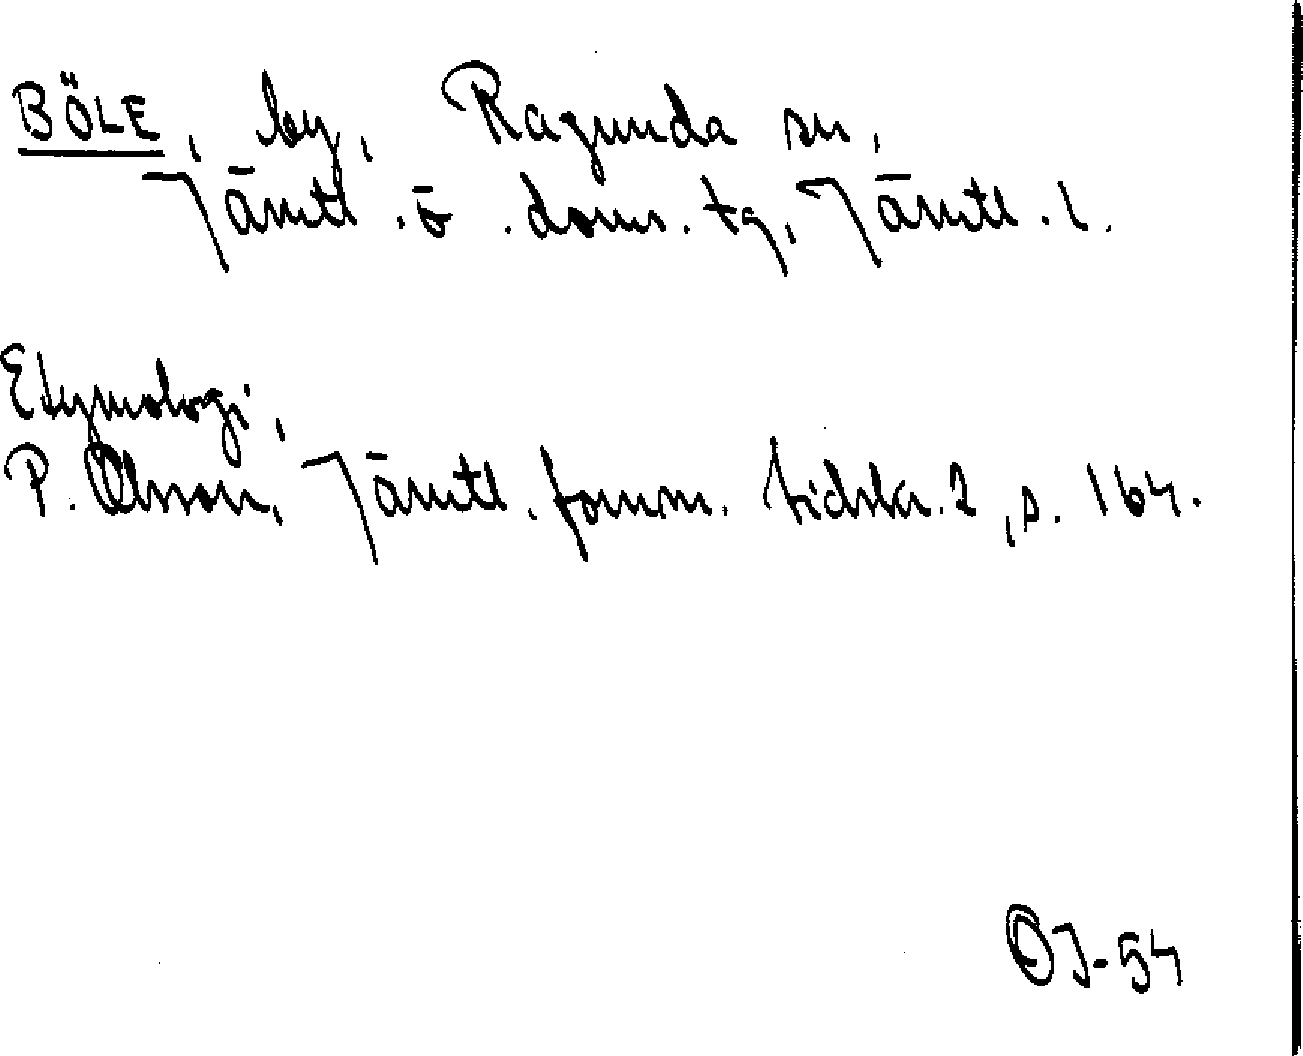 BÖLE, by, Ragunda sn,
Jämtl. ö. doms. tg, Jämtl. l.
Etymologi,
P. Olsson, Jämtl. fornm. tidskr. 2, s. 164.
OJ-54